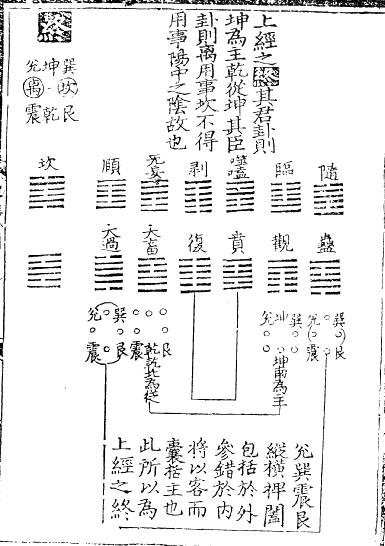 上經之其君卦則
坤為主乾從坤其臣
卦則离用事坎不得
用事陽中之陰故也
巽坤兌
坎离
艮乾震
隨 臨 噬嗑 剥 无妄 順 坎
蠱 觀 賁 復 大畜 大過
巽 兌 巽 坤 兌
艮 震
坤兩為主
巽 兌
艮 乾乾此為從 震 艮 震
兌巽震艮
縱橫捭闔
包括於外
參錯於內
將以客而
囊括主也
此所以為
上經之終